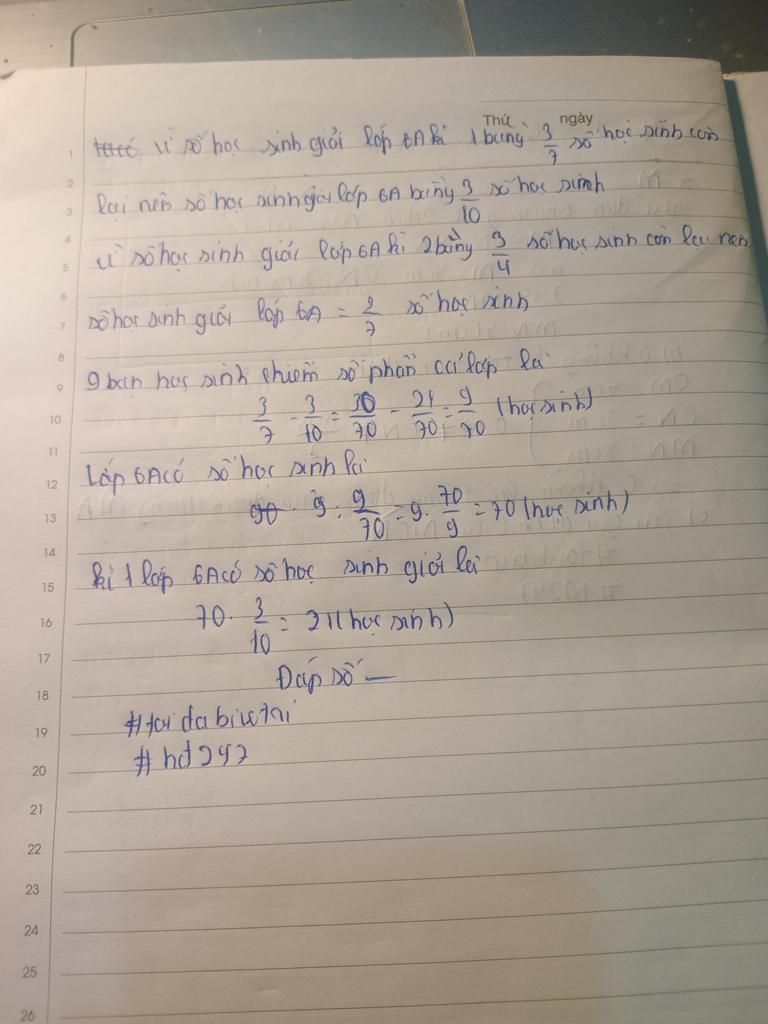 Thứ ngày
Vì số học sinh giỏi lớp 6A kì 1 bằng 3/7 số học sinh còn
lại nên số học sinh giỏi lớp 6A bằng 3/10 số học sinh
Vì số học sinh giỏi lớp 6A kì 2 bằng 3/4 số học sinh còn lại nên
số học sinh giỏi lớp 6A = 3/7 số học sinh
9 bạn học sinh chiếm số phần cả lớp là
3/7 - 3/10 = 30/70 - 21/70 = 9/70 (học sinh)
Lớp 6A có số học sinh là
9 : 9/70 = 9 . 70/9 = 70 (học sinh)
kì 1 lớp 6A có số học sinh giỏi là
70 . 3/10 = 21 (học sinh)
Đáp số —
#hd247
1
2
3
4
5
6
7
8
9
10
11
12
13
14
15
16
17
18
19
20
21
22
23
24
25
26